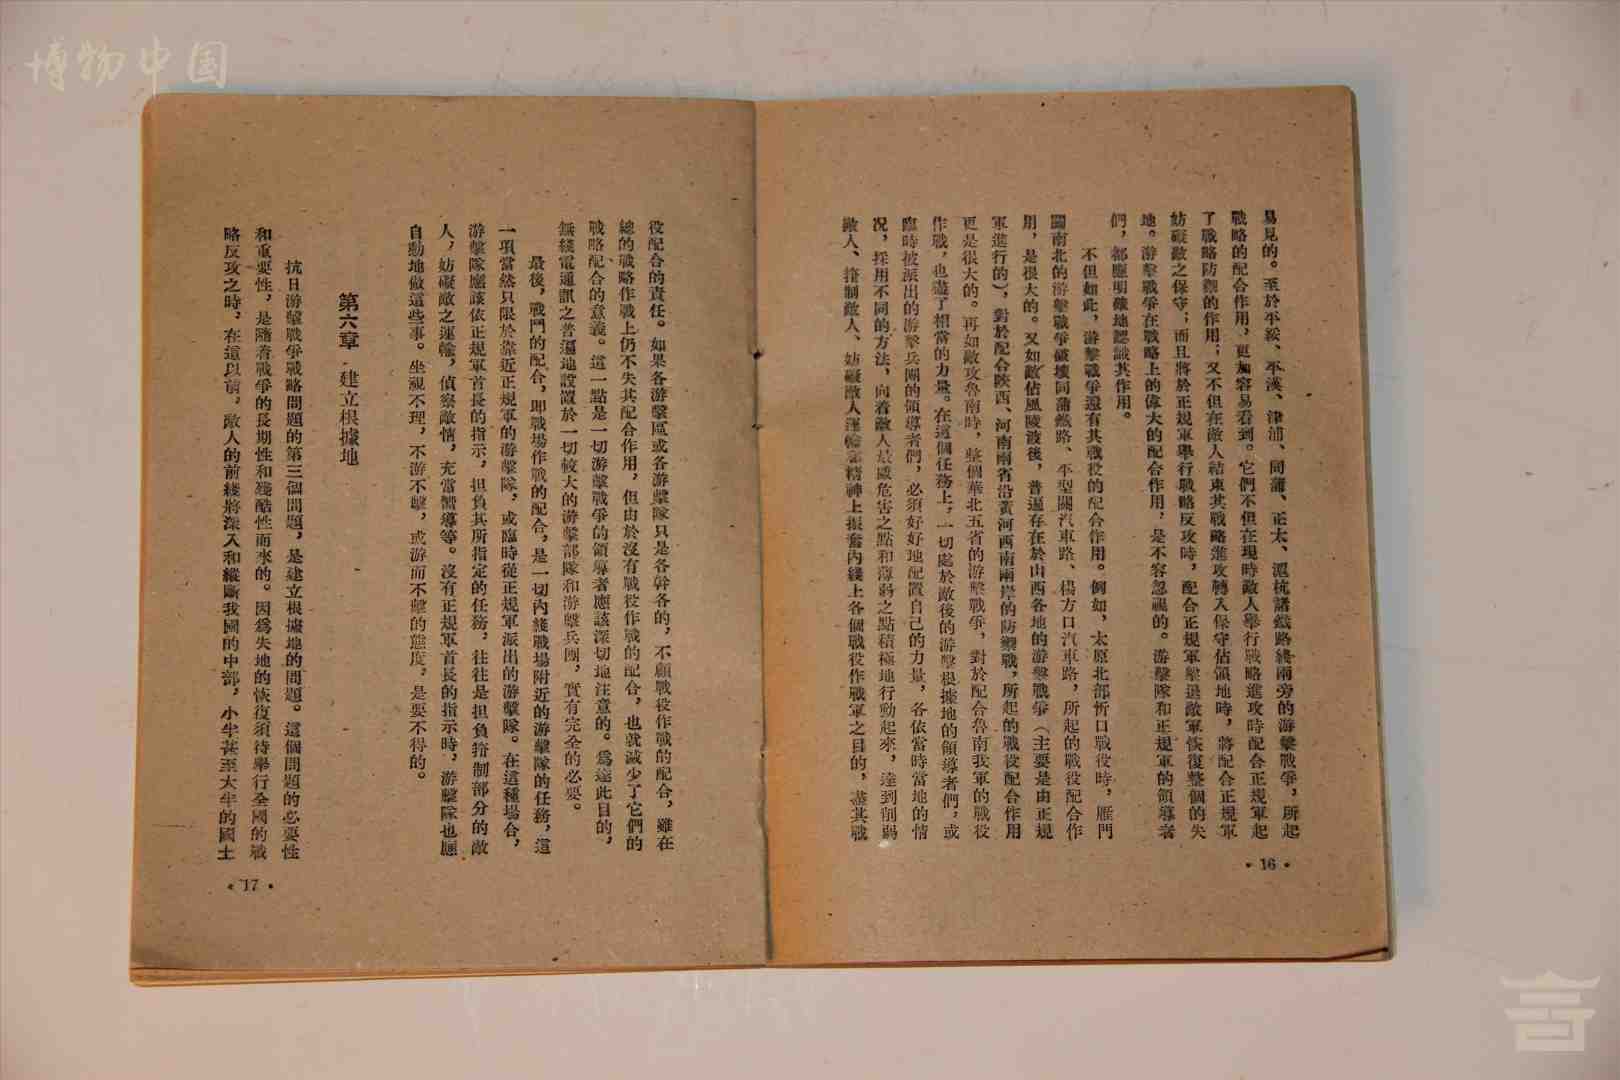 博物中国
易見的。至於平綏、平漢、津浦、同蒲、正太、滬杭諸鐵路綫兩旁的游擊戰爭，所起
戰略的配合作用，更加容易看到。它們不但在現時敵人舉行戰略進攻時配合正規軍起
了戰略防禦的作用；又不但在敵人結束其戰略進攻轉入保守佔領地時，將配合正規軍
妨礙敵之保守；而且將於正規軍舉行戰略反攻時，配合正規軍擊退敵軍恢復整個的失
地。游擊戰爭在戰略上的偉大的配合作用，是不容忽視的。游擊隊和正規軍的領導者
們，都應明確地認識其作用。
不但如此，游擊戰爭還有其戰役的配合作用。例如，太原北部忻口戰役時，雁門
關南北的游擊戰爭破壞同蒲鐵路、平型關汽車路、楊方口汽車路，所起的戰役配合作
用，是很大的。又如敵佔風陵渡後，普遍存在於山西各地的游擊戰爭（主要是由正規
軍進行的），對於配合陝西、河南兩省沿黃河西南兩岸的防禦戰，所起的戰役配合作用
更是很大的。再如敵攻魯南時，整個華北五省的游擊戰爭，對於配合魯南我軍的戰役
作戰，也盡了相當的力量。在這個任務上，一切處於敵後的游擊根據地的領導者們，或
臨時被派出的游擊兵團的領導者們，必須好好地配置自己的力量，各依當時當地的情
况，採用不同的方法，向着敵人最感危害之點和薄弱之點積極地行動起來，達到削弱
敵人、箝制敵人、妨礙敵人運輸和精神上振奮內綫上各個戰役作戰軍之目的，盡其戰
• 16 •
役配合的責任。如果各游擊區或各游擊隊只是各幹各的，不顧戰役作戰的配合，雖在
總的戰略作戰上仍不失其配合作用，但由於沒有戰役作戰的配合，也就減少了它們的
戰略配合的意義。這一點是一切游擊戰爭的領導者應該深切地注意的。爲達此目的，
無綫電通訊之普遍地設置於一切較大的游擊部隊和游擊兵團，實有完全的必要。
最後，戰鬥的配合，即戰場作戰的配合，是一切內綫戰場附近的游擊隊的任務，這
一項當然只限於靠近正規軍的游擊隊，或臨時從正規軍派出的游擊隊。在這種場合，
游擊隊應該依正規軍首長的指示，担負其所指定的任務，往往是担負箝制部分的敵
人，妨礙敵之運輸，偵察敵情，充當嚮導等。沒有正規軍首長的指示時，游擊隊也應
自動地做這些事。坐視不理，不游不擊，或游而不擊的態度，是要不得的。
第六章 建立根據地
抗日游擊戰爭戰略問題的第三個問題，是建立根據地的問題。這個問題的必要性
和重要性，是隨着戰爭的長期性和殘酷性而來的。因爲失地的恢復須待舉行全國的戰
略反攻之時，在這以前，敵人的前綫將深入和縱斷我國的中部，小半甚至大半的國土
• 17 •